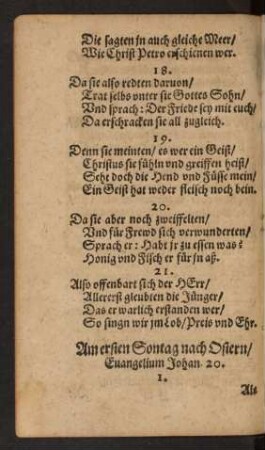 Die sagten jn auch gleiche Meer/
Wie Christ Petro erschienen wer.
18.
Da sie also redten daruon/
Trat selbs vnter sie Gottes Sohn/
Vnd sprach: Der Friede sey mit euch/
Da erschracken sie all zugleich.
19.
Denn sie meinten/ es wer ein Geist/
Christus sie fühln vnd greiffen heist/
Seht doch die Hend vnd Füsse mein/
Ein Geist hat weder fleisch noch bein.
20.
Da sie aber noch zweiffelten/
Vnd für Frewd sich verwunderten/
Sprach er: Habt jr zu essen was?
Honig vnd Fisch er für jn aß.
21.
Also offenbart sich der HErr/
Allererst gleubten die Jünger/
Das er warlich erstanden wer/
So singn wir jm Lob/ Preis vnd Ehr.
Am ersten Sontag nach Ostern/
Euangelium Johan. 20.
1.
Als